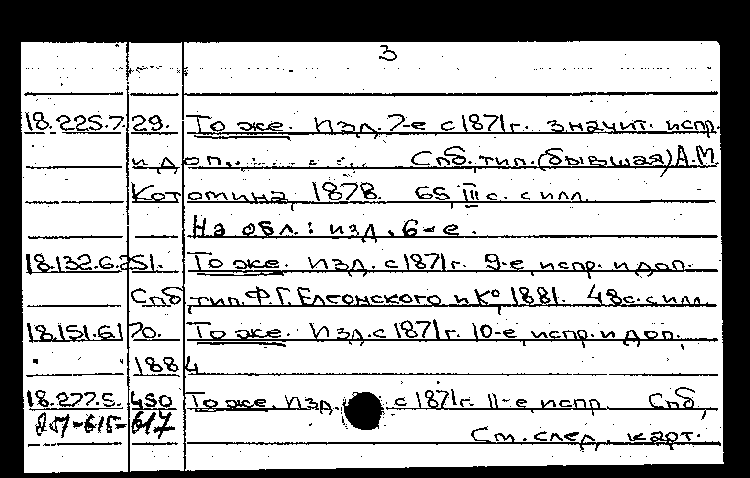 3
18.225.7.29. То же. Изд. 7-е с 1871г. значит. испр.
и доп. Спб, тип. (бывшая) А.М.
Котомина, 1878. 68, III с. с илл.
На обл.: изд. 6-е.
18.132.6.251. То же. Изд. с 1871г. 9-е, испр. и доп.
Спб, тип. Ф.Г. Елеонского и Ко, 1881. 48 с. с илл.
18.151.6.170. То же. Изд. с 1871г. 10-е, испр. и доп.
1884
18.277.5.450 То же. Изд. с 1871г. 11-е, испр. Спб,
См. след. карт.